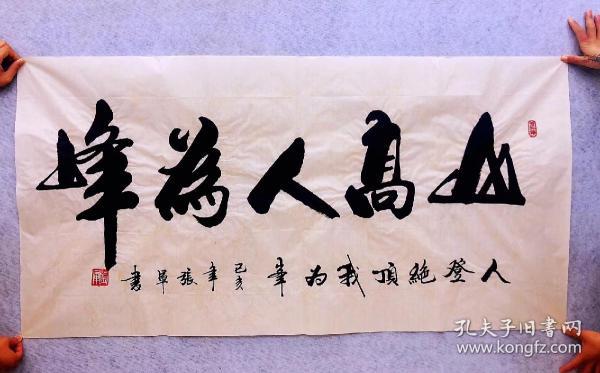 山高人為峰
人登絶頂我为峯 己亥年張軍書
孔夫子旧书网
www.kongfz.com